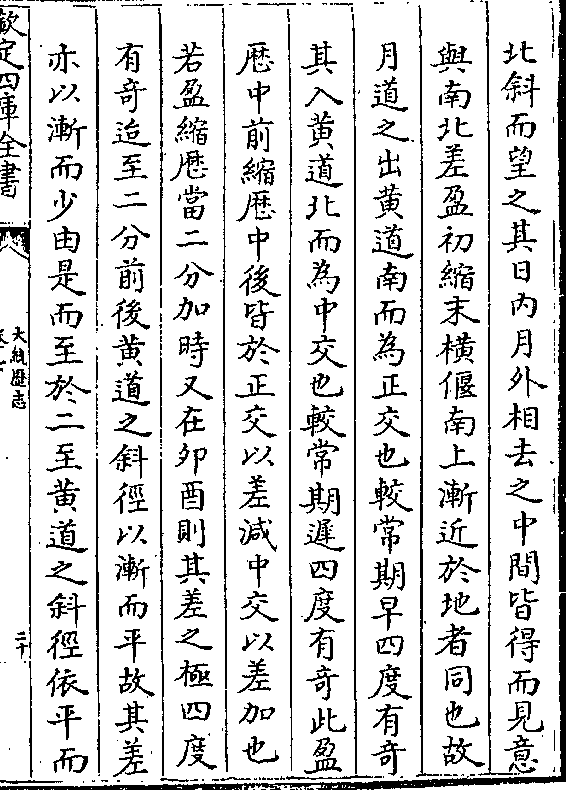 北斜而望之其日内月外相去之中間皆得而見意
與南北差盈初縮末橫偃南上漸近於地者同也故
月道之出黄道南而為正交也較常期早四度有奇
其入黄道北而為中交也較常期遲四度有奇此盈
厯中前縮厯中後皆於正交以差減中交以差加也
若盈縮厯當二分加時又在夘酉則其差之極四度
有奇迨至二分前後黄道之斜徑以漸而平故其差
亦以漸而少由是而至於二至黄道之斜徑依平而
欽定四庫全書
大統厯志
二十